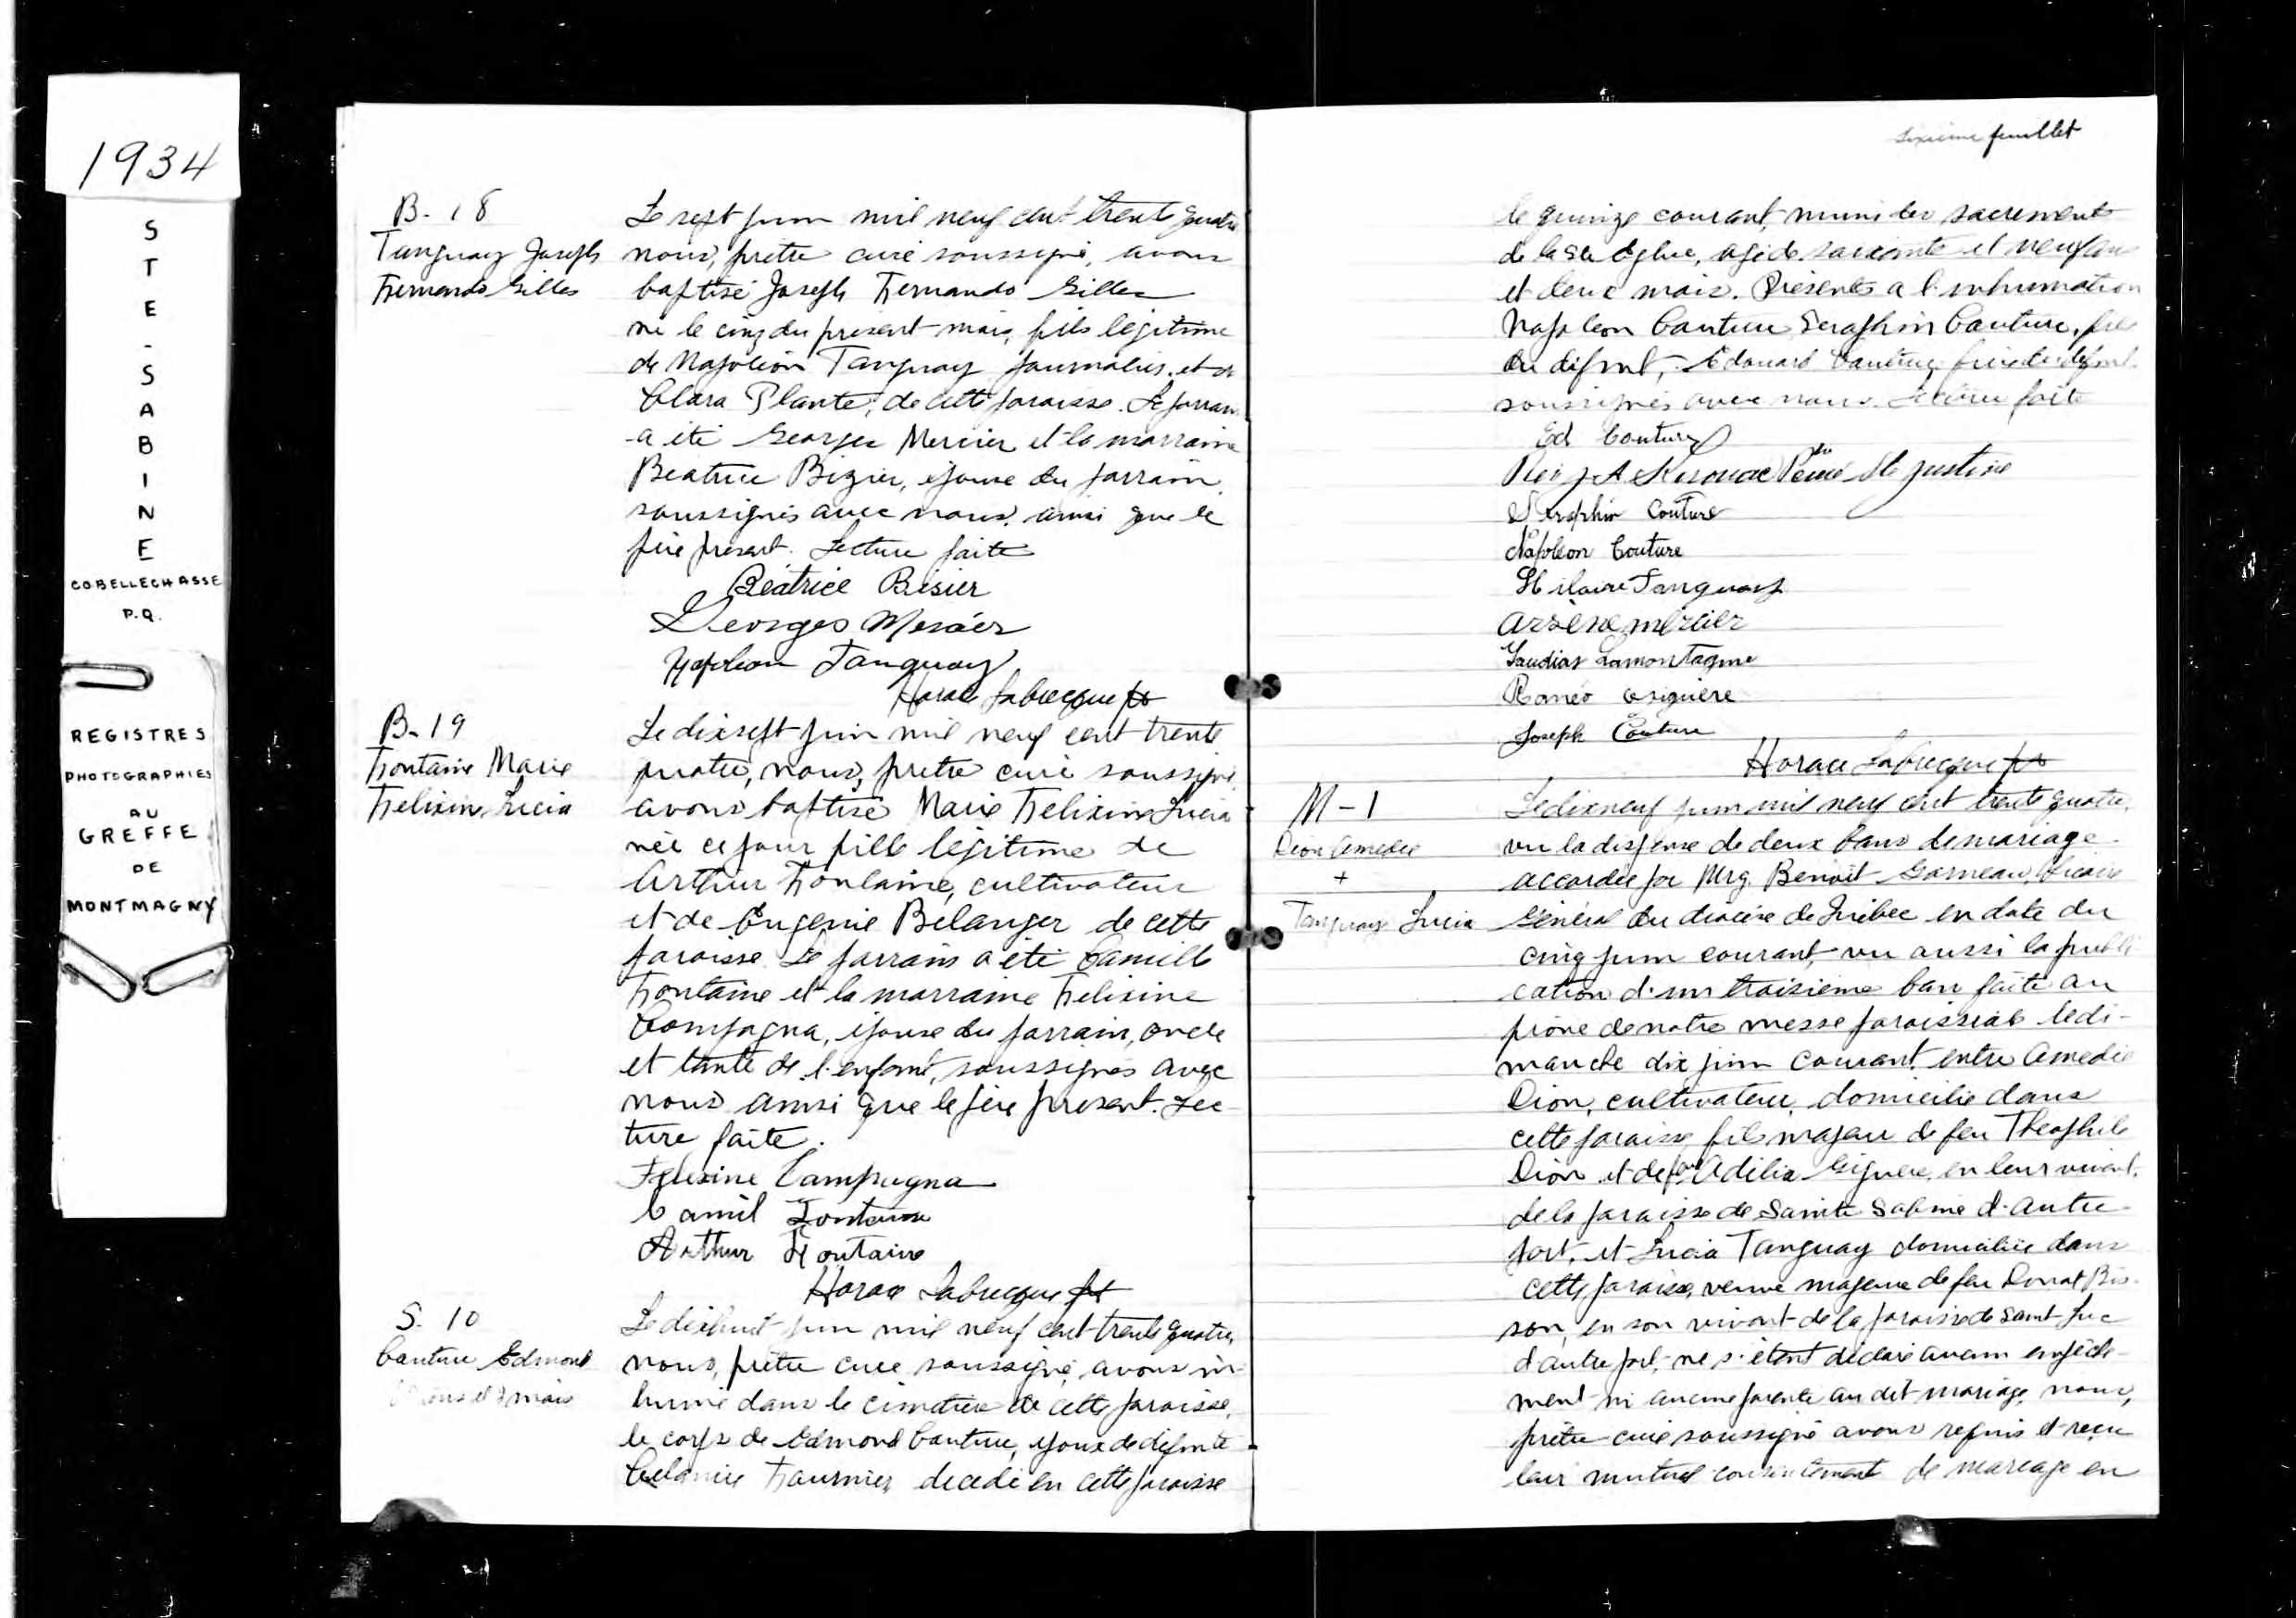 1934
STE-SABINE
COBELLECHASSE
P.Q.
REGISTRES
PHOTOGRAPHIES
AU
GREFFE
DE
MONTMAGNY
B-18
Tanguay Joseph
Fernando Gilles
Le sept juin mil neuf cent trente quatre
nous, prêtre curé soussigné, avons
baptisé Joseph Fernando Gilles
né le cinq du présent mois, fils légitime
de Napoléon Tanguay journalier, et de
Clara Plante, de cette paroisse. Le parrain
a été Georges Mercier et la marraine
Beatrice Bizier, épouse du parrain,
soussignés avec nous, ainsi que le
père présent. Lecture faite
Béatrice Bisier
Georges Mercier
Napoleon Tanguay
Horace Labrecque ptr
B-19
Fontaine Marie
Felixine Lucia
Le dix sept juin mil neuf cent trente
quatre, nous, prêtre curé soussigné,
avons baptisé Marie Felixine Lucia
née ce jour fille légitime de
Arthur Fontaine, cultivateur
et de Eugenie Belanger de cette
paroisse. Le parrain a été Camille
Fontaine et la marraine Felixine
Compagna, épouse du parrain, oncle
et tante de l'enfant, soussignés avec
nous ainsi que le père présent. Lec-
ture faite.
Felixine Campagna
Camil Fontaine
Arthur Fontaine
Horace Labrecque ptr
S. 10
Couture Edmond
ans et 2 mois
Le dix huit juin mil neuf cent trente quatre,
nous, prêtre curé soussigné, avons in-
humé dans le cimetière de cette paroisse,
le corps de Edmond Couture, époux de défunte
Fournier, décédé en cette paroisse
Sixième feuillet
le quinze courant, muni des sacrements
de la Ste Eglise, agé de soixante et neuf ans
et deux mois. Présents a l'inhumation
Napoleon Couture Seraphin Couture, fils
du défunt, Edouard Couture frère du défunt
soussignés avec nous. Lecture faite
Ed Couture
J A Kirouac Ptre curé Ste Justine
Séraphin Couture
Napoléon Couture
Hilaire Tanguay
Arsène mercier
Gaudias Lamontagne
Roméo
Joseph Couture
Horace Labrecque ptr
M-1
Dion Amedée
+
Tanguay Lucia
Le dix neuf juin mil neuf cent trente quatre,
vu la dispense de deux bans de mariage
accordée par Mrg. Benoit Garneau, Vicaire
Général du diocèse de Québec en date du
cinq juin courant, vu aussi la publi-
cation d'un troisième ban faite au
prône de notre messe paroissiale le di-
manche dix juin courant, entre Amedée
Dion, cultivateur, domicilié dans
cette paroisse, fils majeur de feu Théophile
Dion et de feue Adélia Giguere, en leur vivant,
de la paroisse de Sainte Sabine d'autre
part, et Lucia Tanguay domiciliée dans
cette paroisse, veuve majeure de feu Donat Bis-
son, en son vivant de la paroisse de Saint Luc
d'autre part, ne s'étant déclaré aucun empêche-
ment ni aucune parenté au dit mariage, nous,
prêtre curé soussigné avons requis et reçu
leur mutuel consentement de mariage en